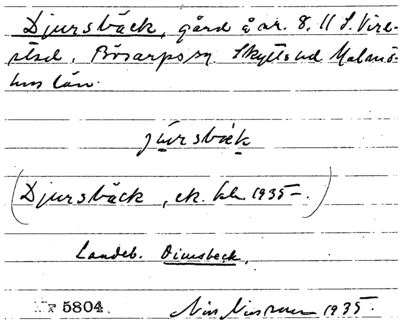 Djursbäck, gård å nr. 8, 11 S. Virestad, Börsarps sn Skytts hd Malmöhus län.
jursbäk
(Djursbäck, ek. kbl 1935.)
Landeb. Diursbeck.
Nr 5804. 1935.